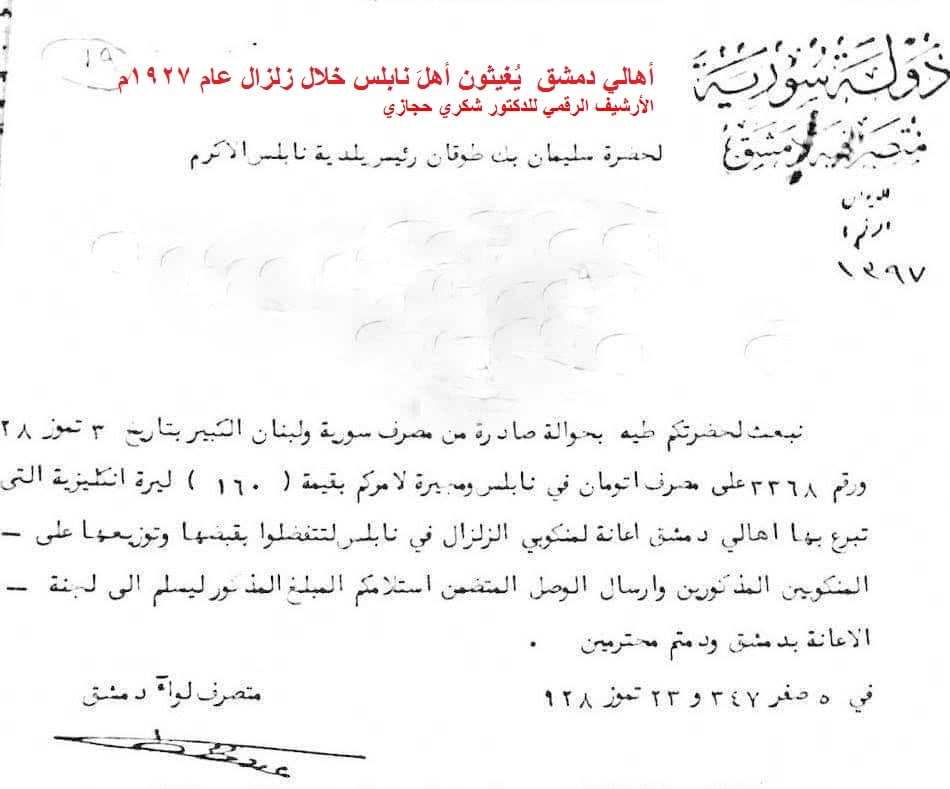 ١٩
أهالي دمشق يُغيثون أهلَ نابلس خلال زلزال عام ١٩٢٧م
الأرشيف الرقمي للدكتور شكري حجازي
دولة سورية
متصرفية لواء دمشق
الديوان
الرقم
١٣٩٧
لحضرة سليمان بك طوقان رئيس بلدية نابلس الاكرم
نبعث لحضرتكم طيه بحوالة صادرة من مصرف سورية ولبنان الكبير بتاريخ ٣ تموز ٩٢٨
ورقم ٣٣٦٨ على مصرف اتومان في نابلس ومجيرة لامركم بقيمة ( ١٦٠ ) ليرة انكليزية التي
تبرع بها اهالي دمشق اعانة لمنكوبي الزلزال في نابلس لتتفضلوا بقبضها وتوزيعها على —
المنكوبين المذكورين وارسال الوصل المتضمن استلامكم المبلغ المذكور ليسلم الى لجنة —
الاعانة بدمشق ودمتم محترمين .
في ٥ صفر ٣٤٧ و ٢٣ تموز ٩٢٨
متصرف لواء دمشق